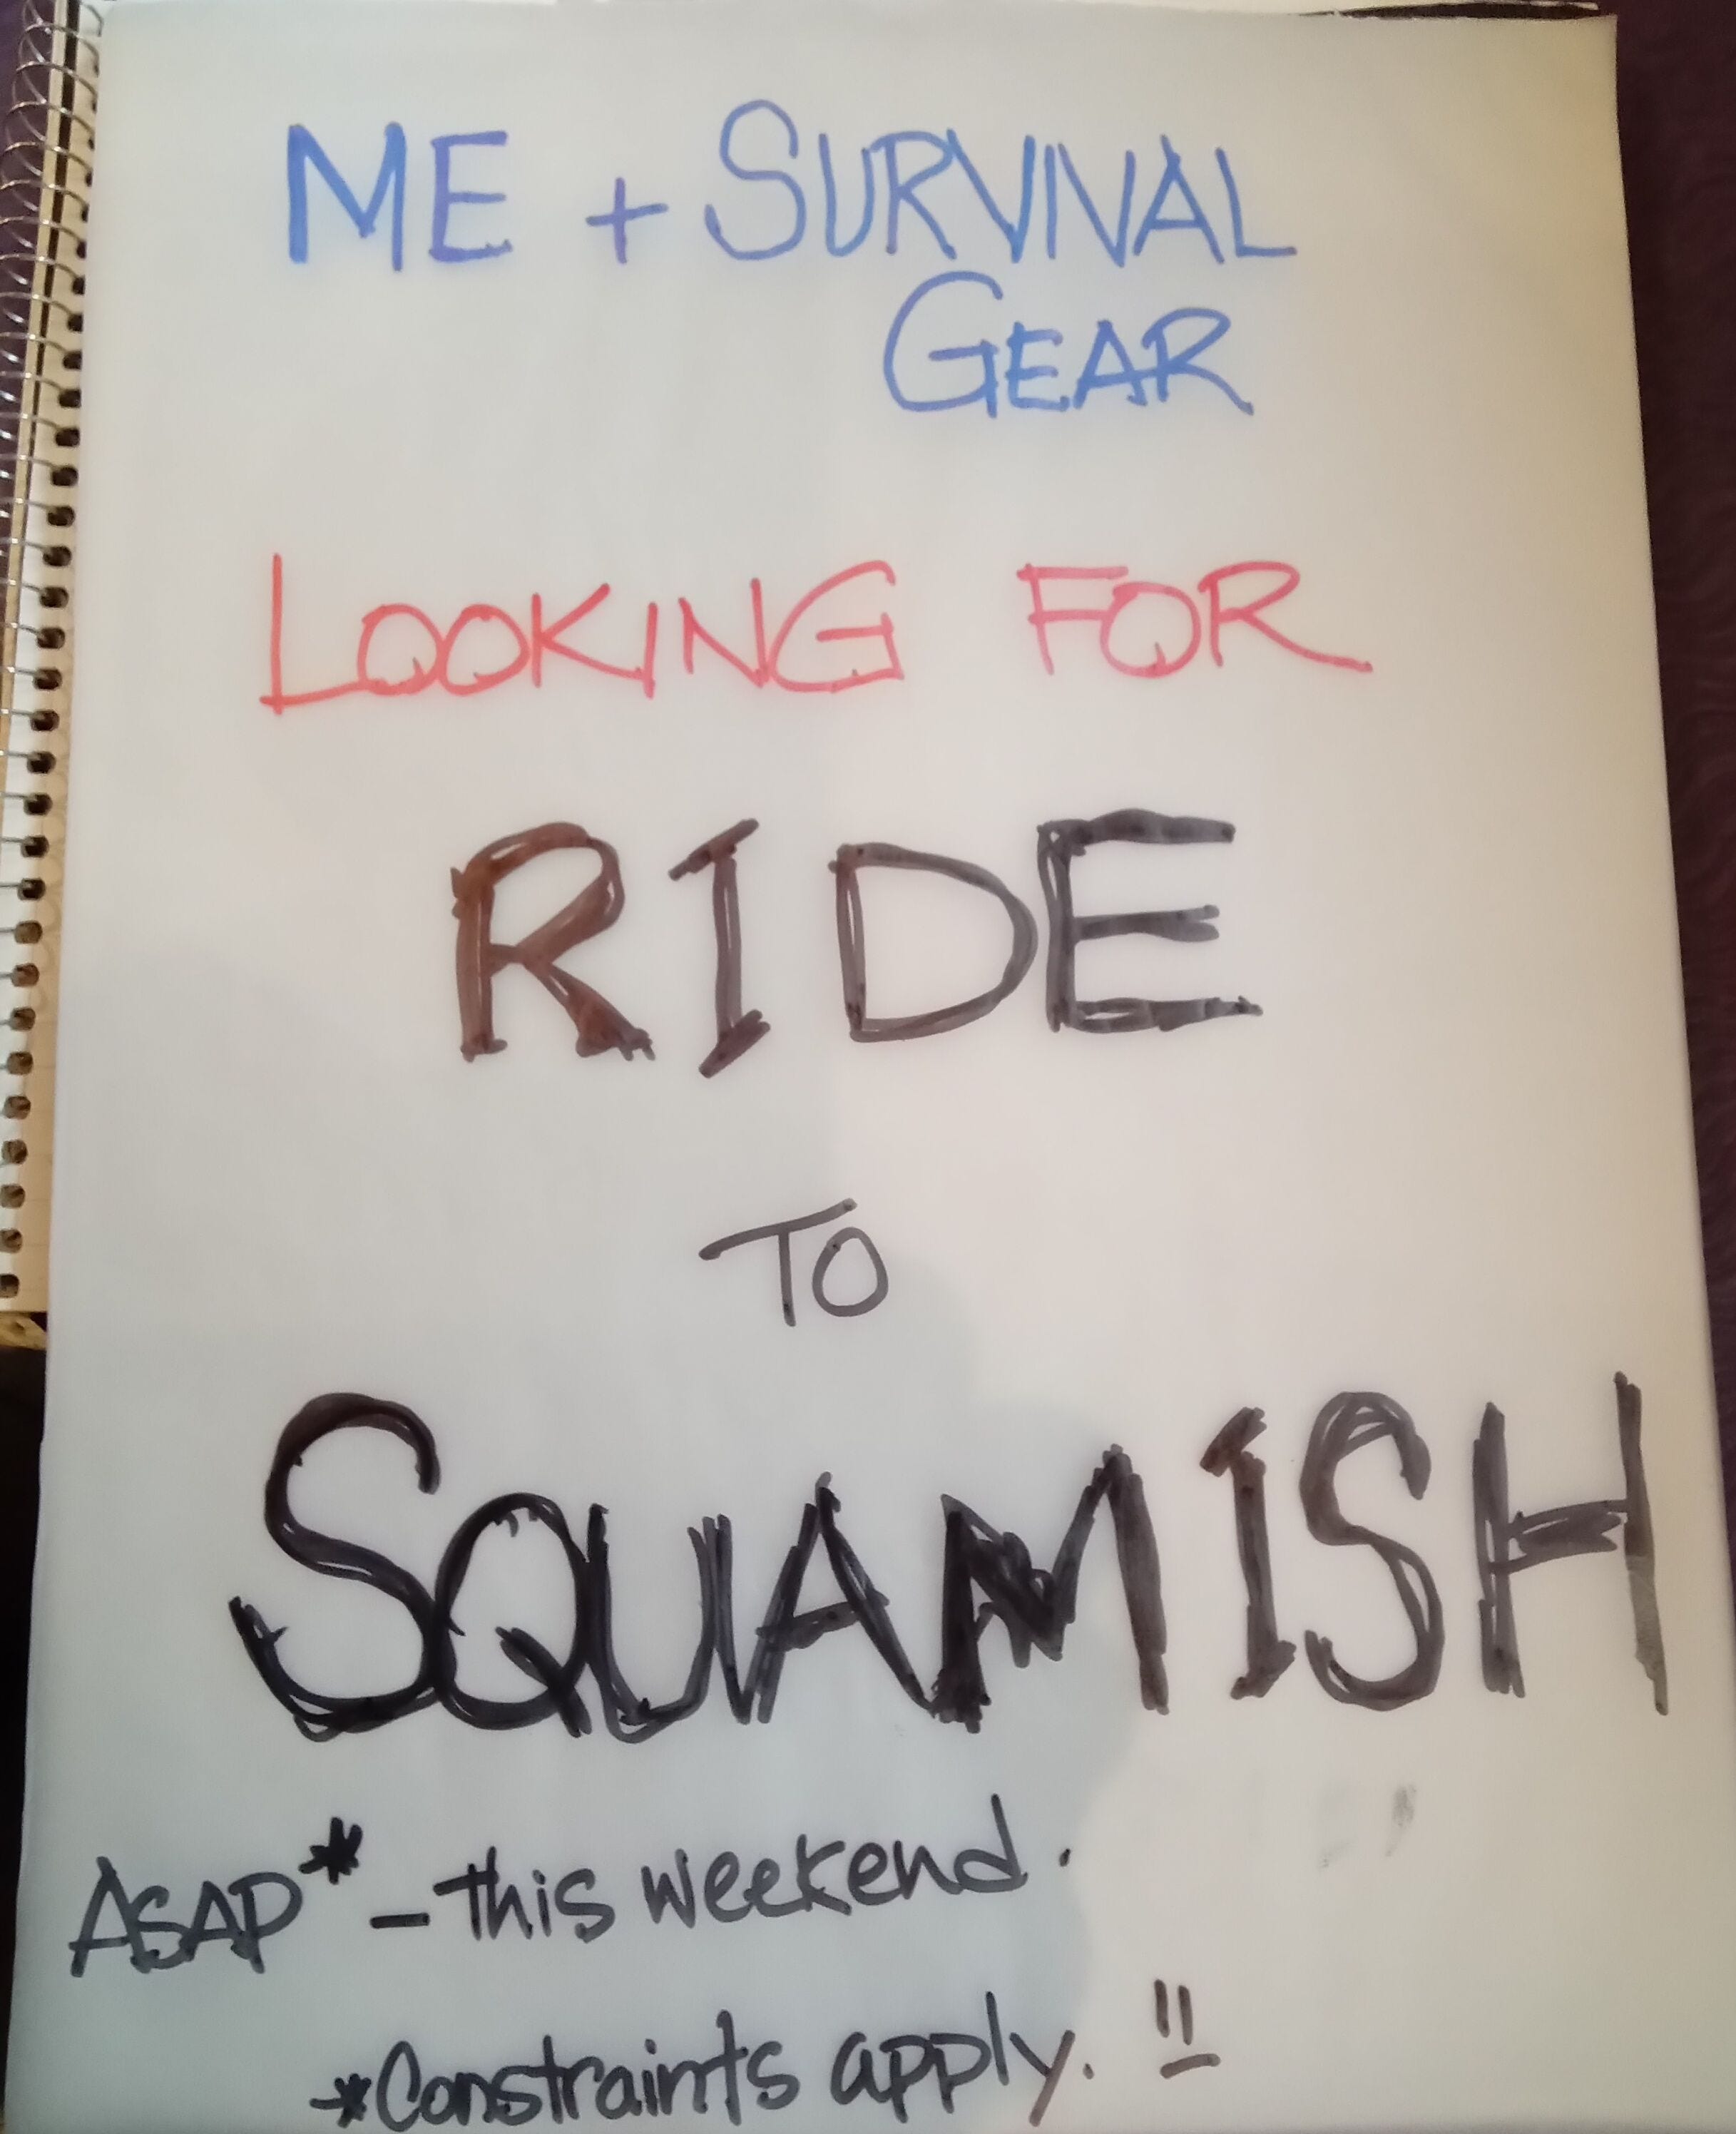 ME + SURVIVAL
GEAR
LOOKING FOR
RIDE
TO
SQUAMISH
ASAP* - this weekend.
*Constraints apply. !!